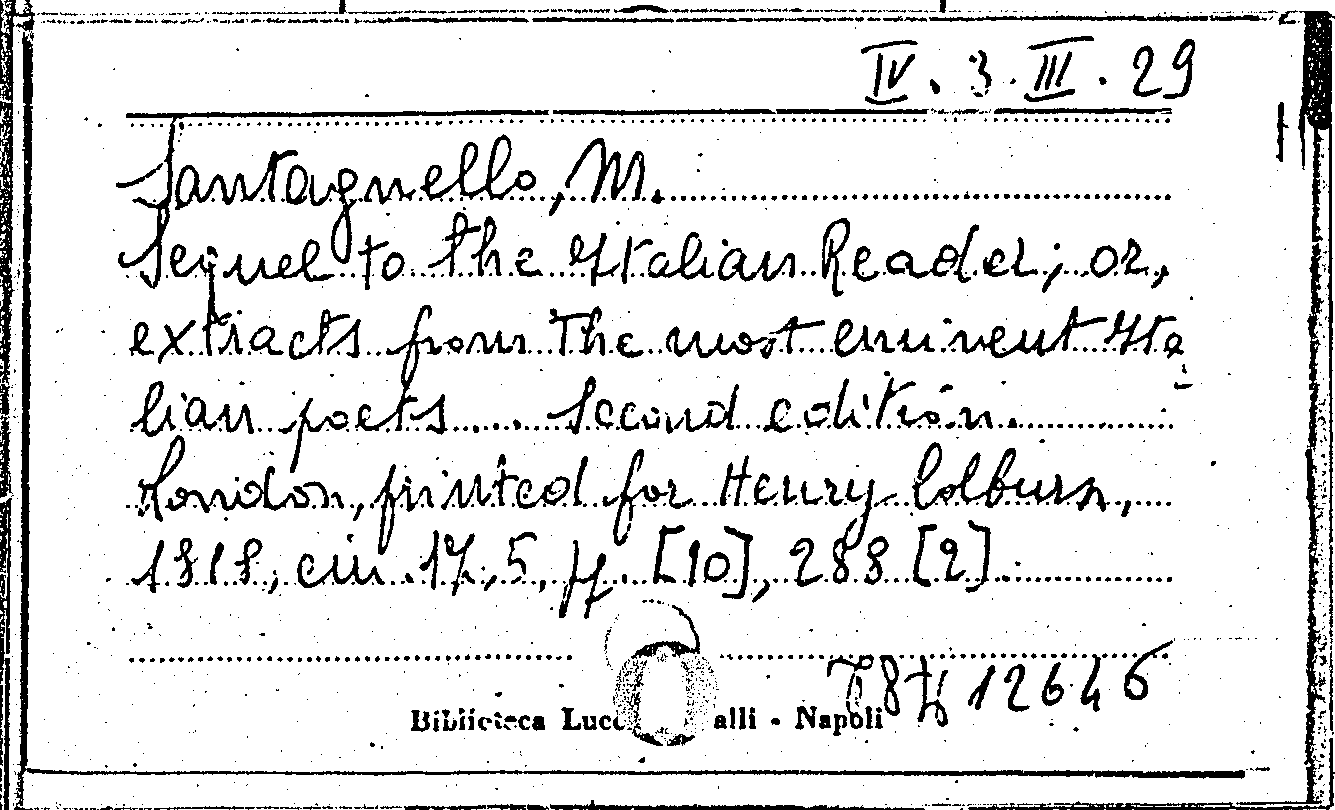 IV. 3. III. 29
Santagnello, M.
Sequel to the Italian Reader; or,
extracts from the most eminent Ita
lian poets.... Second edition.
London, printed for Henry Colburn,
1818, cm. 17,5, pp. [10], 288 [2].
12646
Biblioteca Lucc alli - Napoli